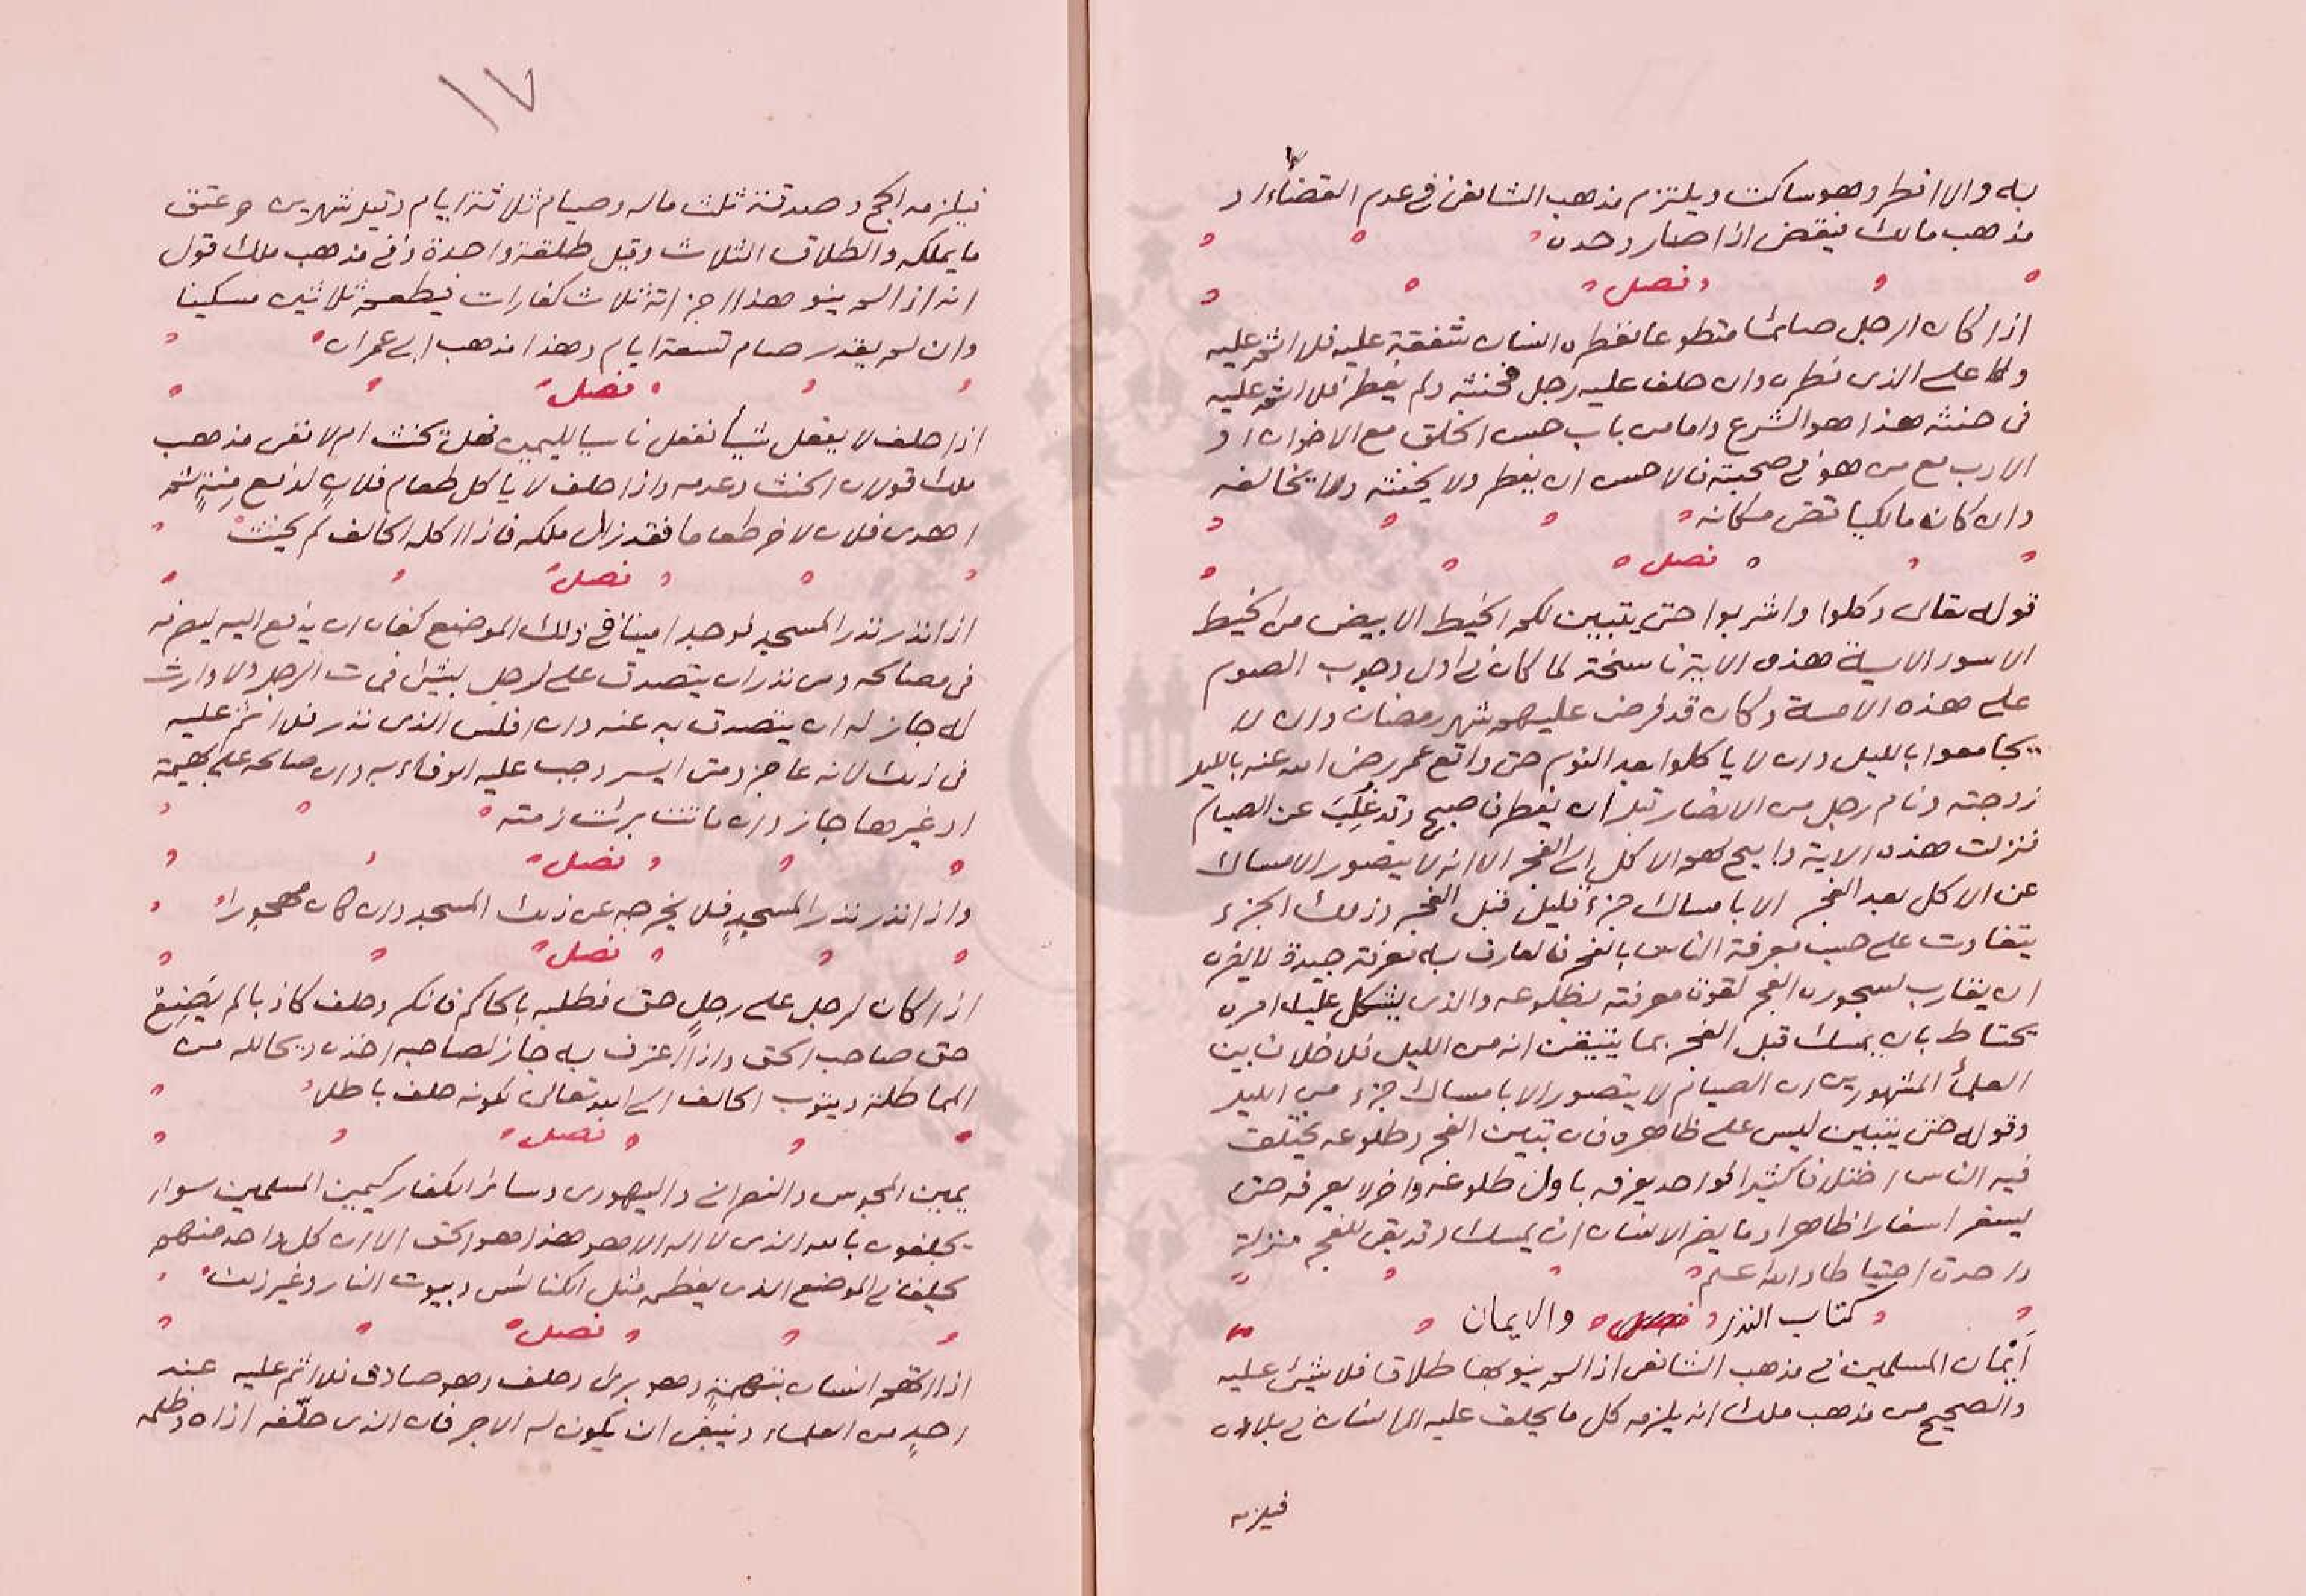 به والا افطر وهو ساكت ويلتزم مذهب الشافعى فى عدم القضاء او
مذهب مالك فيقضى اذا صار وحده
فصل
اذا كان الرجل صائما متطوعا ففطره انسان شفقة عليه فلا اثم عليه
ولا على الذى فطره وان حلف عليه رجل فحنثه ولم يفطر فلا اثم عليه
فى حنثه هذا هو الشرع واما من باب حسن الخلق مع الاخوان او
الادب مع من هو فى صحبته فالاحسن ان يفطر ولا يحنثه ولا يخالفه
وان كان مالكيا قضى مكانه
فصل
قوله تعالى وكلوا واشربوا حتى يتبين لكم الخيط الابيض من الخيط
الاسود الاية هذه الاية ناسخة لما كان فى اول وجوب الصوم
على هذه الامة وكان قد فرض عليهم شهر رمضان وان لا
يجامعوا بالليل وان لا ياكلوا بعد النوم حتى واقع عمر رضى الله عنه بالليل
زوجته ونام رجل من الانصار قبل ان يفطر فاصبح وقد غُلِبَ عن الصيام
فنزلت هذه الاية وابيح لهم الاكل الى الفجر الا انه لا يتصور الامساك
عن الاكل بعد الفجر الا بامساك جزء قليل قبل الفجر وذلك الجزء
يتفاوت على حسب معرفة الناس بالفجر فالعارف به معرفة جيدة لا يضره
ان يقارب بسحوره الفجر لقوة معرفته بطلوعه والذى يشكل عليه امره
يحتاط بان يمسك قبل الفجر بما يتيقن انه من الليل فلا خلاف بين
العلماء المشهورين ان الصيام لا يتصور الا بامساك جزء من الليل
وقوله حتى يتبين ليس على ظاهره فان تبين الفجر وطلوعه يختلف
فيه الناس اختلافا كثيرا فواحد يعرفه باول طلوعه واخر لا يعرفه حتى
يسفر اسفارا ظاهرا وما يضر الانسان ان يمسك وقد بقى للفجر منزلة
واحدة احتياطا والله اعلم
كتاب النذر والايمان
اَيْمان المسلمين فى مذهب الشافعى اذا لم ينو بها طلاقا فلا شئ عليه
والصحيح من مذهب ملك انه يلزمه كل ما يحلف عليه الانسان فى بلاده
فيلزمه
١٧
فيلزمه الحج وصدقة ثلث ماله وصيام ثلاثة ايام وقيل شهرين وعتق
ما يملكه والطلاق الثلاث وقيل طلقة واحدة وفى مذهب ملك قول
انه اذا لم ينو هذا اجزاته ثلاث كفارات يطعم ثلاثين مسكينا
وان لم يقدر صام تسعة ايام وهذا مذهب ابى عمران
فصل
اذا حلف لا يفعل شيأ ففعل ناسيا لليمين فهل يحنث ام لا ففى مذهب
ملك قولان الحنث وعدمه واذا حلف لا ياكل طعام فلانٍ لدفع مِنّةٍ ثم
اهدى فلان لاخر طعاما فقد زال ملكه فاذا اكله الحالف لم يحنث
فصل
اذا نذر نذر المسجد فوجد امينا فى ذلك الموضع كفاه ان يدفع اليه ليصرفه
فى مصالحه ومن نذر ان يتصدق على رجل بشئ فمات الرجل ولا وارث
له جاز له ان يتصدق به عنه وان افلس الذى نذر فلا اثم عليه
فى ذلك لانه عاجز ومتى ايسر وجب عليه الوفاء به وان صالحه على بهيمة
او غيرها جاز وان ماتت برئت ذمته
فصل
واذا نذر نذرا لمسجدٍ فلا يخرجه عن ذلك المسجد وان كان مهجورا
فصل
اذا كان لرجل على رجلٍ حق فطلبه بالحاكم فانكر وحلف كاذبا لم يَضِعْ
حق صاحب الحق واذا اعترف به جاز لصاحبه اخذه ويحالله من
المماطلة ويتوب الحالف الى الله تعالى لكونه حلف باطلا
فصل
يمين المجوس والنصرانى واليهودى وسائر الكفار كيمين المسلمين سواء
يحلفون بالله الذى لا اله الا هو هذا هو الحق الا ان كل واحد منهم
يحلف فى الموضع الذى يعظمه مثل الكنائس وبيوت النار وغير ذلك
فصل
اذا اتهم انسان بتهمةٍ وهو برئ وحلف وهو صادق فلا اثم عليه عند
احدٍ من العلماء وينبغى ان يكون له الاجر فان الذى حلّفه اذاه وظلمه